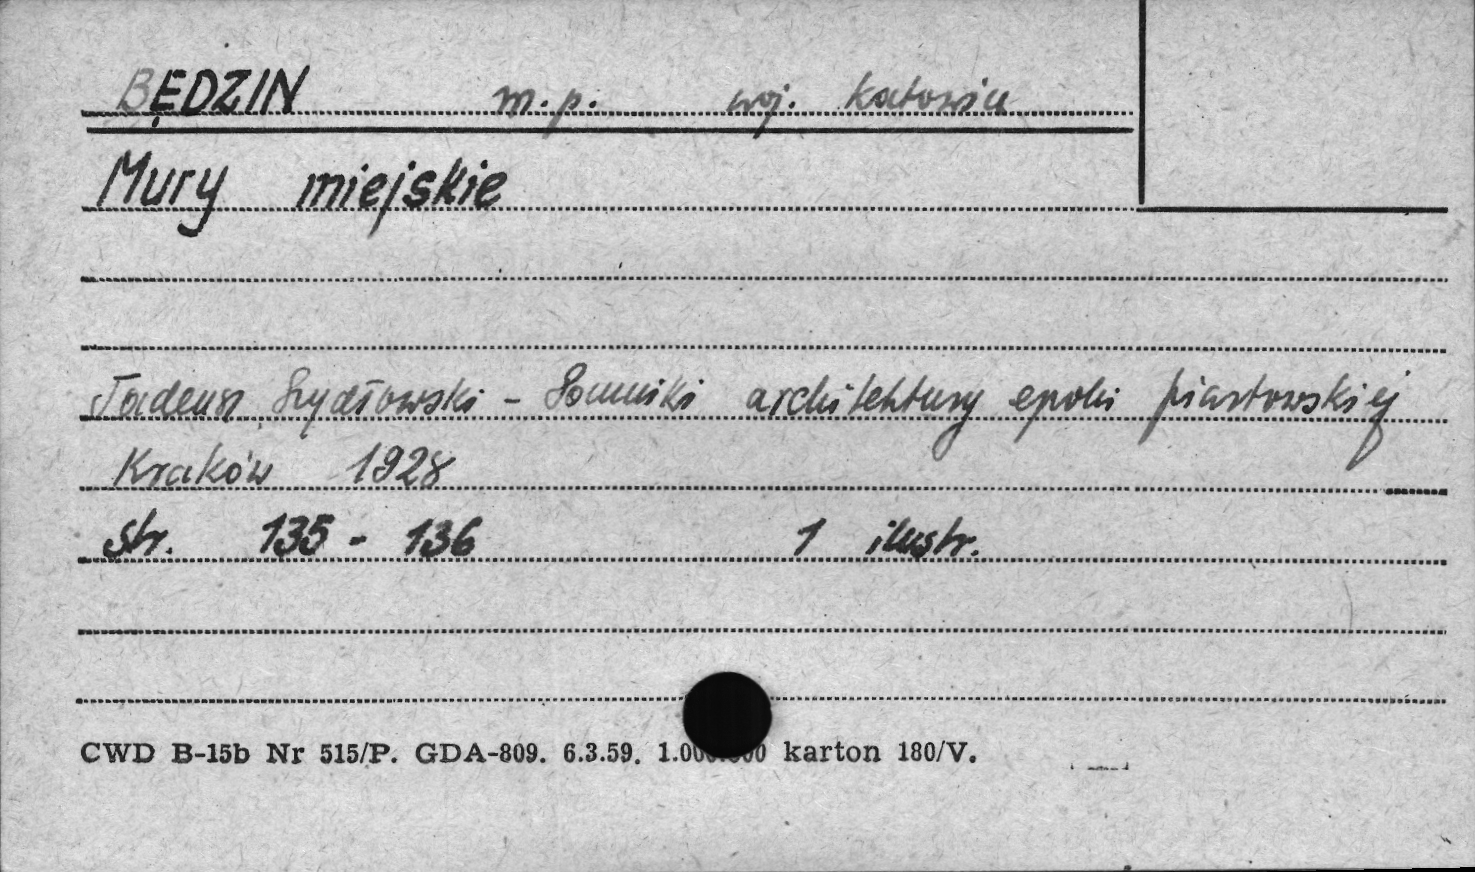 BĘDZIN m.p. woj. Katowice
Mury miejskie
Tadeusz Szydłowski - Pomniki architektury epoki piastowskiej
Kraków 1928
str. 135 - 136 1 ilustr.
CWD B-15b Nr 515/P. GDA-809. 6.3.59. 1.000.000 karton 180/V.